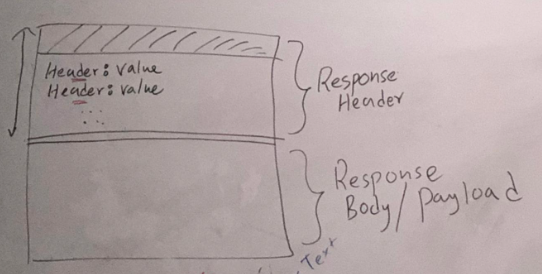 Header: value
Header: value
Response
Header
Response
Body/payload
Text